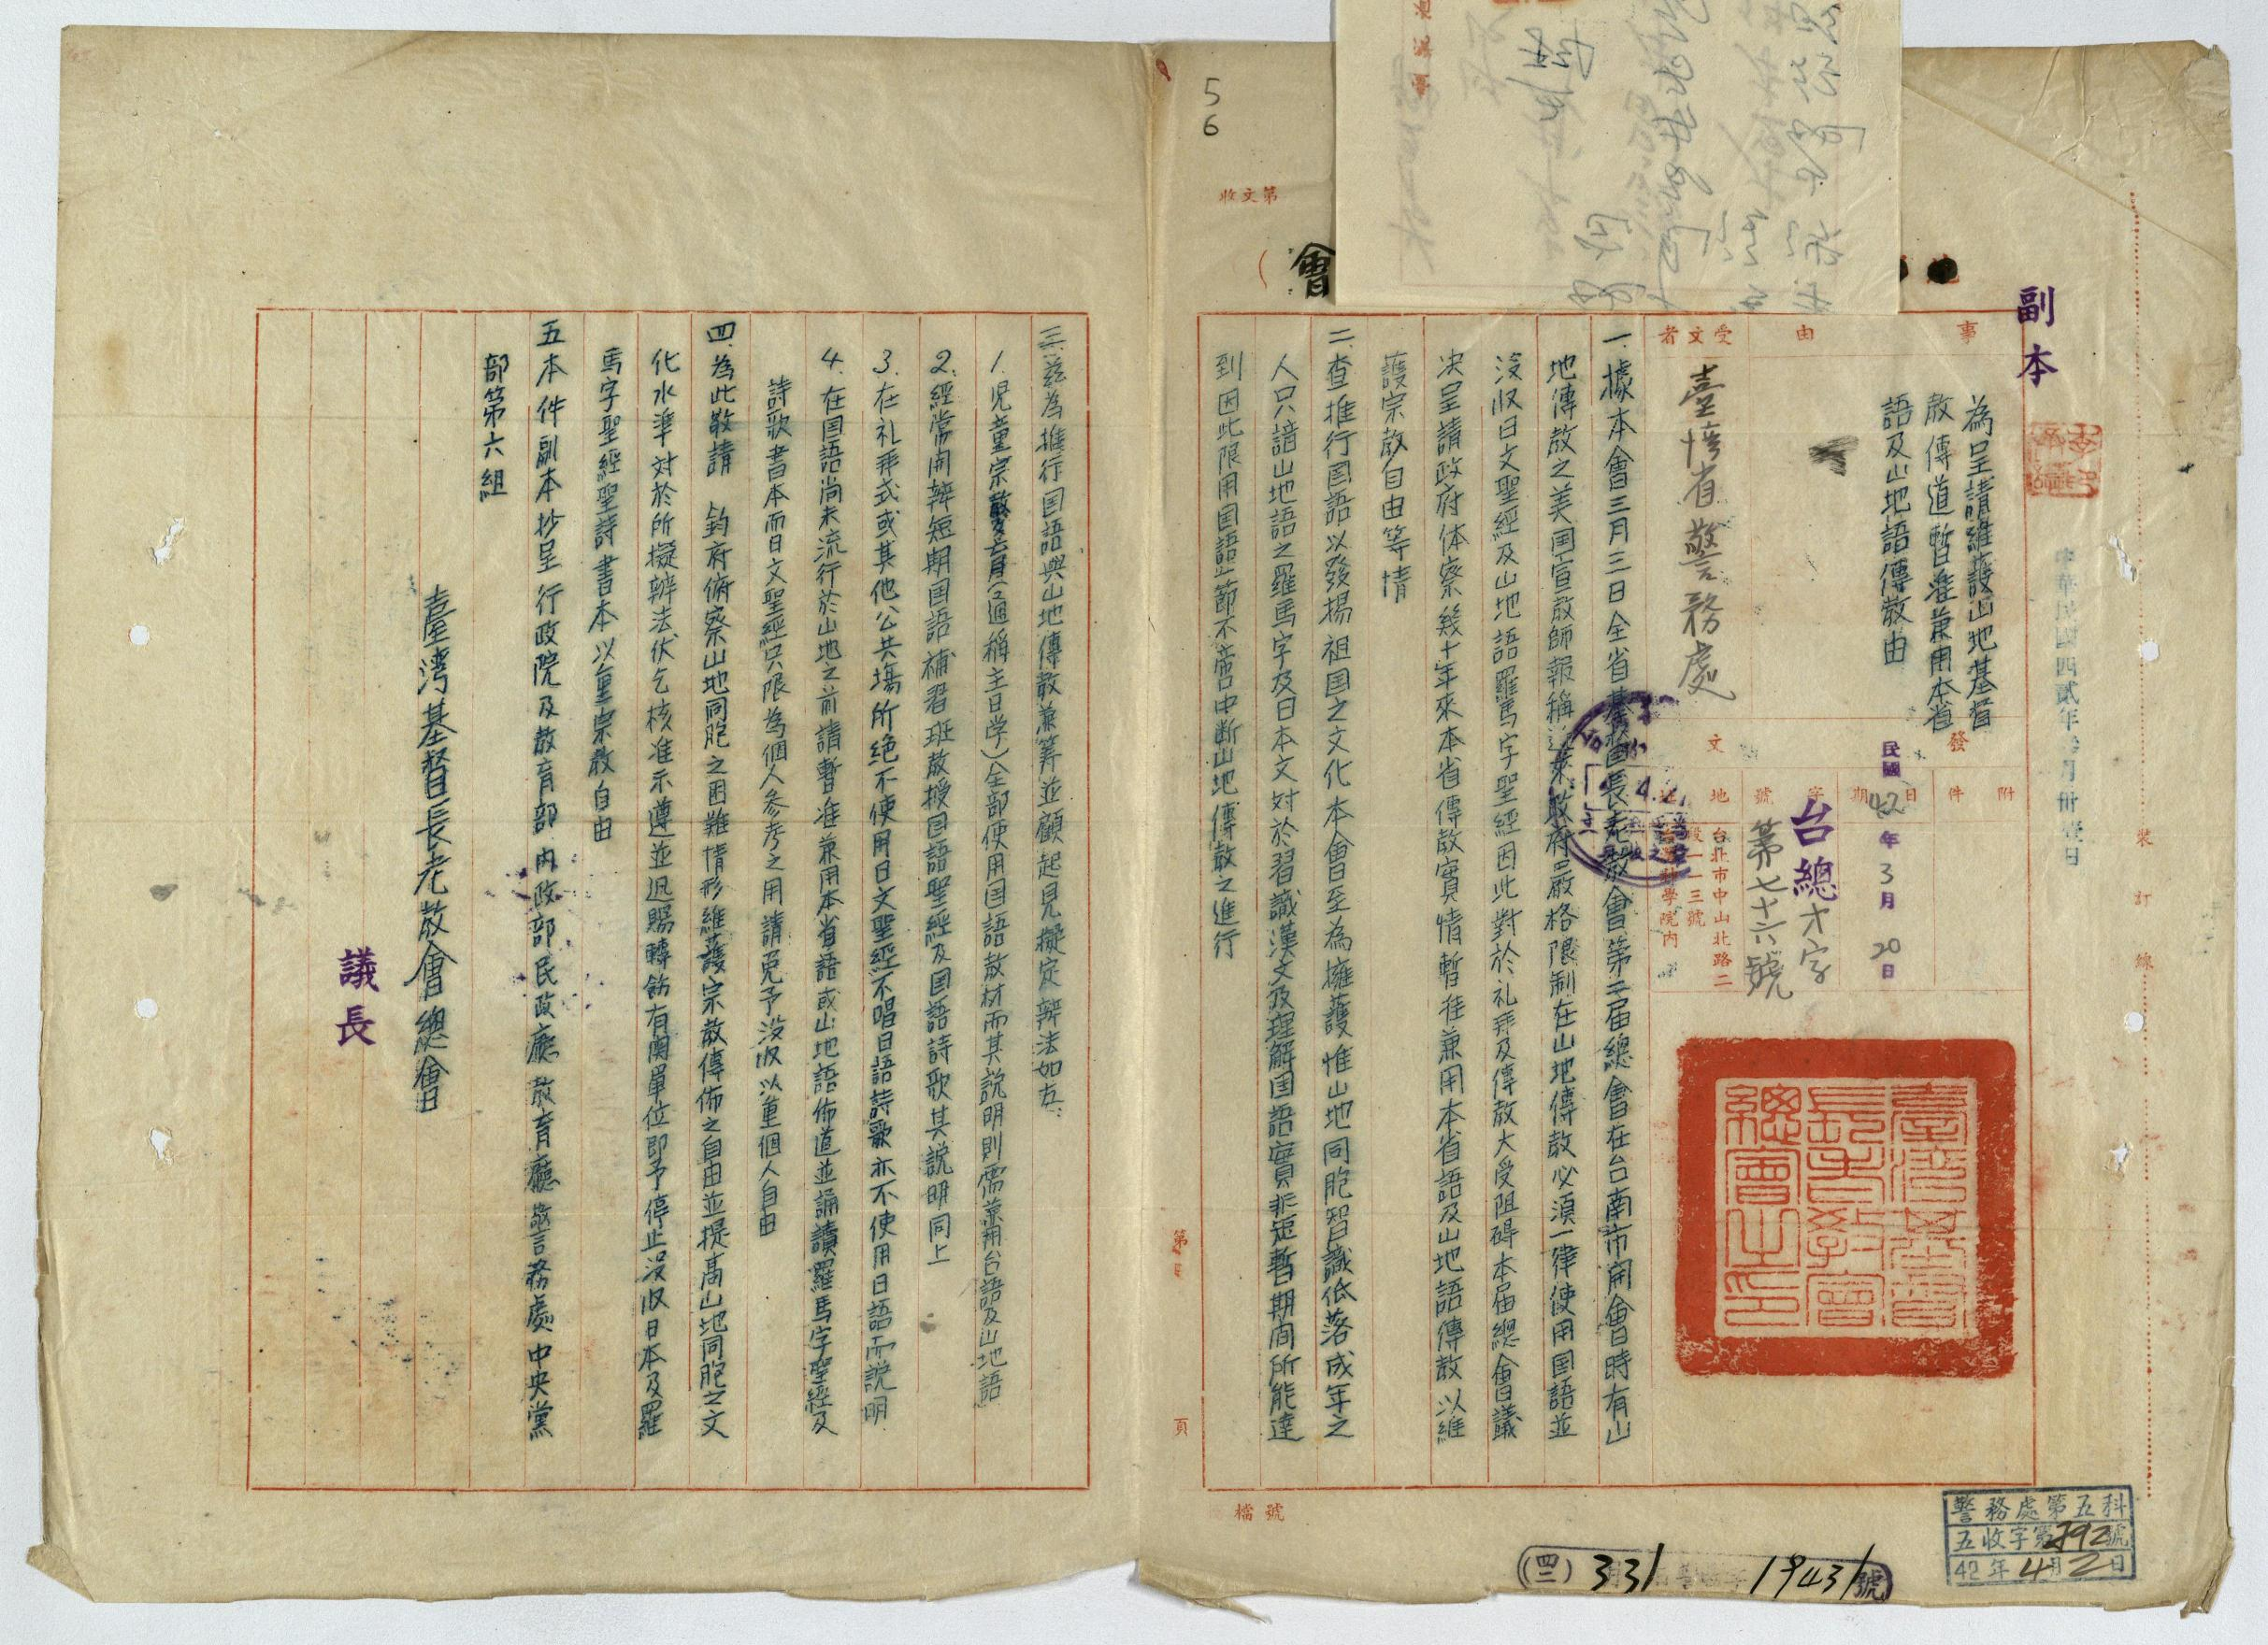 副本
中華民國四貳年叁月卅壹日
裝訂線
事由
為呈請維護山地基督
教傳道暫准兼用本省
語及山地語傳教由
受文者
臺灣省警務處
附件
發文
日期
民國42年3月20日
字號
台總才字
第七十六號
地
台北市中山北路二
段一一三號
學院內
臺灣基督
長老教會
總會之印
一、據本會三月三日全省基督長老教會第二届總會在台南市開會日時有山
地傳教之美国宣教師報稱近來政府嚴格限制在山地傳教必須一律使用国語並
沒收日文聖經及山地語羅馬字聖經因此對於礼拜及傳教大受阻碍本届總會議
决呈請政府体察幾十年來本省傳教實情暫准兼用本省語及山地語傳教以維
護宗教自由等情
二、查推行国語以發揚祖国之文化本會至為擁護惟山地同胞智識低落成年之
人只諳山地語之羅馬字及日本文対於習識漢文及理解国語實非短暫期间所能達
到因此限用国語一節不啻中断山地傳教之進行
三、茲為推行国語與山地傳教兼籌並顧起見擬定辨法如左:
1.児童宗教教育(通稱主日学)全部使用国語教材而其説明則需兼用台語及山地語
2.經常開辨短期国語補習班教授国語聖經及国語詩歌其説明同上
3.在礼拜式或其他公共場所絶不使用日文聖經不唱日語詩歌亦不使用日語而説明
4.在国語尚未流行於山地之前請暫准兼用本省語或山地語佈道並誦讀羅馬字聖經及
詩歌書本而日文聖經只限為個人参考之用請免予没收以重個人自由
四、為此敬請 鈞府俯察山地同胞之困難情形維護宗教傳佈之自由並提高山地同胞之文
化水準対於所擬辨法伏乞核准示遵並迅賜轉飭有関單位即予停止没收日本及羅
馬字聖經聖詩書本以重宗教自由
五本件副本抄呈行政院及教育部內政部民政廳教育廳警務處中央黨
部第六組
臺灣基督長老教會總會
議長
收文第
會
5
6
第
頁
檔號
(四二)331
19431號
警務處第五科
五收字第792號
42年4月2日